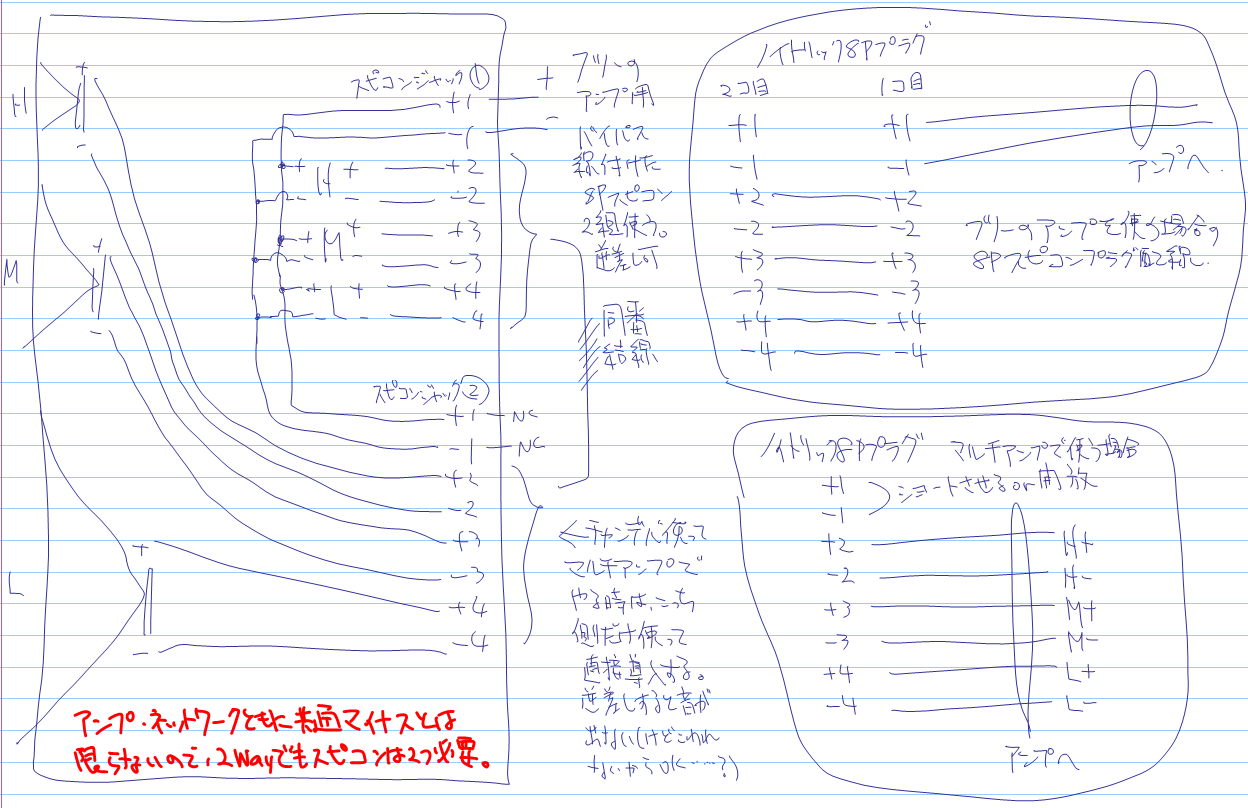 H
+
-
M
+
-
L
+
-
スピコンジャック①
+1
-1
+2
-2
+3
-3
+4
-4
+ H +
- -
+ M +
- -
+ L +
- L -
+
-
ブリーの
アンプ用
バイパス
線付けた
8Pスピコン
2組使う。
逆差し可
同番
結線
スピコンジャック②
+1 NC
-1 NC
+2
-2
+3
-3
+4
-4
←チャンデバ使って
マルチアンプで
やる時は、こっち
側だけ使って
直接導入する。
逆差しすると音が
出ない(けどこわれ
ないからOK……?)
アンプ・ネットワークともに共通マイナスとは
限らないので、2Wayでもスピコンは2つ必要。
ノイトリック8Pプラグ
2コ目 1コ目
+1 +1
-1 -1
+2 +2
-2 -2
+3 +3
-3 -3
+4 +4
-4 -4
アンプへ.
ブリーのアンプを使う場合の
8Pスピコンプラグ配線.
ノイトリック8Pプラグ マルチアンプで使う場合
+1
-1
ショートさせるor開放
+2 H+
-2 H-
+3 M+
-3 M-
+4 L+
-4 L-
アンプへ